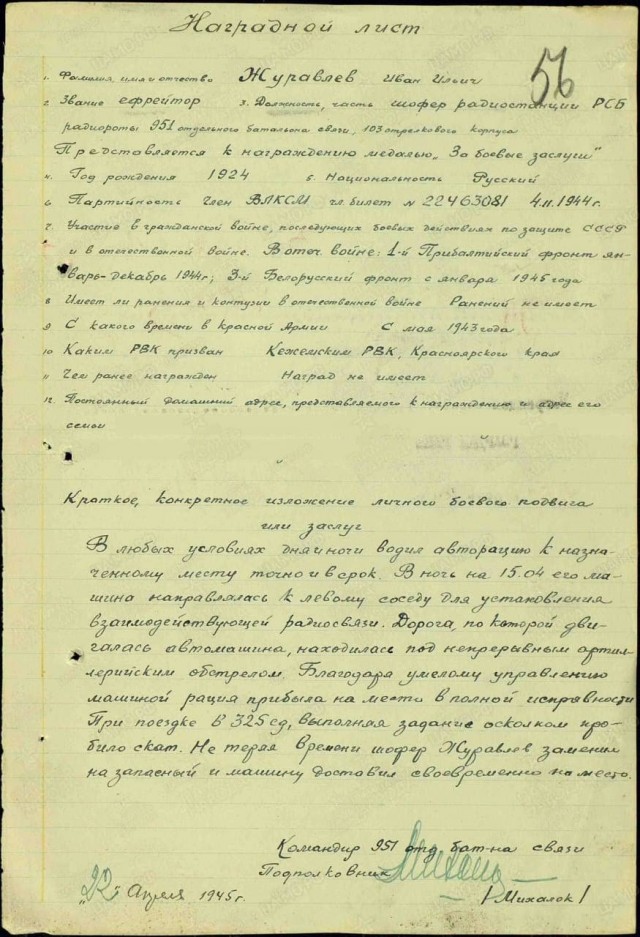 Наградной лист
56
1. Фамилия, имя и отчество Журавлев Иван Ильич
2. Звание ефрейтор 3. Должность, часть шофер радиостанции РСБ
радиороты 951 отдельного батальона связи, 103 стрелкового корпуса
Представляется к награждению медалью „За боевые заслуги"
4. Год рождения 1924 5. Национальность Русский
6. Партийность Член ВЛКСМ чл. билет № 22463081 4.11.1944г.
7. Участие в гражданской войне, последующих боевых действиям по защите СССР
и в отечественной войне. В отеч. войне: 1-й Прибалтийский фронт ян-
варь-декабрь 1944г; 3-й Белорусский фронт с января 1945 года
8 Имеет ли ранения и контузии в отечественной войне Ранений не имеет
9 С какого времени в Красной Армии С мая 1943 года
10 Каким РВК призван Кежемским РВК, Красноярского края
11 Чем ранее награжден Наград не имеет
12 Постоянный домашний адрес, представляемого к награждению и адрес его
семьи
Краткое, конкретное изложение личного боевого подвига
или заслуг
В любых условиях дня и ночи водил авторацию к назна-
ченному месту точно и в срок. В ночь на 15.04 его ма-
шина направлялась к левому соседу для установления
взаимодействующей радиосвязи. Дорога, по которой дви-
галась автомашина, находилась под непрерывным артил-
лерийским обстрелом. Благодаря умелому управлению
машиной рация прибыла на место в полной исправности
При поездке в 325 сд, выполняя задание осколком про-
било скат. Не теряя времени шофер Журавлев заменил
на запасный и машину доставил своевременно на место.
Командир 951 отд. бат-на связи
Подполковник
/Михалок/
„22" Апреля 1945г.